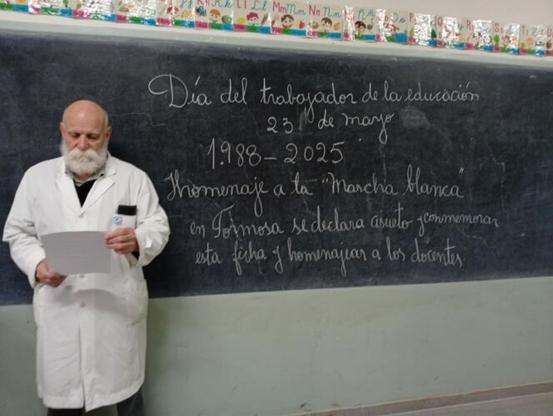 Día del trabajador de la educación
23 de mayo
1.988 - 2025
Homenaje a la "Marcha blanca"
en Formosa se declara asueto y conmemorar
esta fecha y homenajear a los docentes